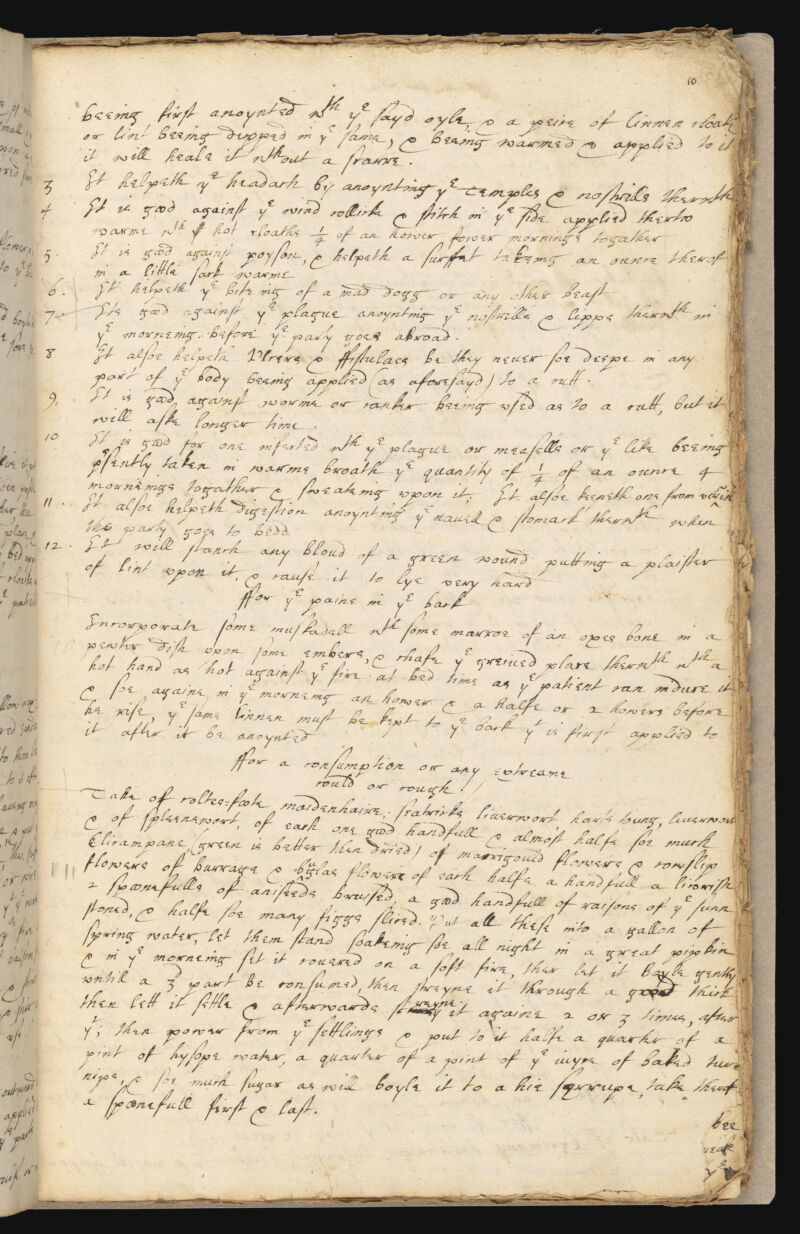 10
beeing first anoynted wth ye sayd oyle, & a peice of linnen cloath
or lint beeing dipped in ye same, & beeing warmed & applied to it
it will heale it wthout a scarre.
3 It helpeth ye headach by anoynting ye temples & nostrills therwth
4 It is good against ye wind collicke & stitch in ye side applied therto
warme wth hot cloaths 1/4 of an hower fower mornings togather
5. It is good against poyson, & helpeth a surffet takeing an ounce therof
in a little sack warme
6. It helpeth ye biteing of a mad dogg or any other beast
7 Its good against ye plague anoynting ye nostrills & lipps therwth in
ye morneing before ye party goes abroad.
8 It alsoe helpeth Ulcers & ffistulaes be they never soe deepe in any
part of ye body beeing applied (as aforesayd) to a cutt.
9. It is good against worme or canker beeing used as to a cutt, but it
will aske longer time.
10 It is good for one infected wth ye plague or measells or ye like beeing
psently taken in warme broath ye quantity of 1/4 of an ounce 4
morneings togather & sweateing upon it; It alsoe keepeth one from
11 It alsoe helpeth digestion anoynting ye navell & stomack therwth when
the party goes to bedd
12. It will stanch any bloud of a green wound putting a plaister
of lint upon it, & cause it to lye very hard
ffor ye paine in ye back
Incorporate some muskadell wth some marroe of an oxes bone in a
pewter dish upon some embers, & chafe ye greived place therwth wth a
hot hand as hot against ye fire at bed time as ye patient can indure it
& soe againe in ye morneing an hower & a halfe or 2 howers before
he rise, ye same linnen must be kept to ye back yt is first applied to
it after it be anoynted
ffor a consumption or any extreame
could or cough.
Take of coltes-foote, maidenhaire, liverwort harts toung,
& of spleenewort, of each one good handfull & almost halfe soe much
Elicampane, (green is better then dried) of marrigould flowers & cowslip
flowers of burrage & buglas flowers of each halfe a handfull a licorish
2 spoonefulls of aniseeds bruised, a good handfull of raisons of ye sunn
stoned, & halfe soe many figgs sliced. Put all these into a gallon of
spring water, let them stand soakeing soe all night in a great pipkin
& in ye morneing set it covered on a soft fire, ther let it boyle gently
untill a 3 part be consumed, then streyne it through a thick
then lett it settle & afterwards streyne it againe 2 or 3 times, after
yt; then power from ye settlings & put to it halfe a quarter of a
pint of hysope water, a quarter of a pint of ye iuyce of baked tur-
nips, & soe much sugar as will boyle it to a syrrupe, take therof
a spoonefull first & last.
bee